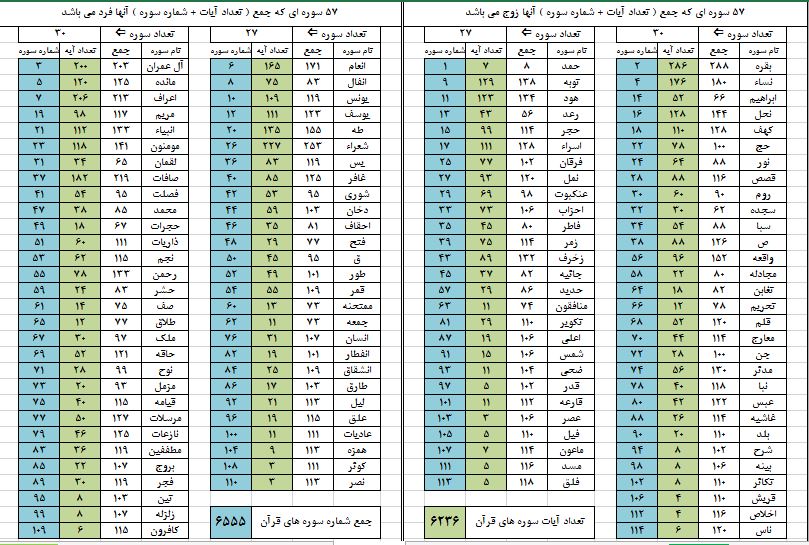 ۵۷ سوره ای که جمع ( تعداد آیات + شماره سوره ) آنها زوج می باشد
تعداد سوره ⇐ ۳۰
نام سوره جمع تعداد آیه شماره سوره
بقره ۲۸۸ ۲۸۶ ۲
نساء ۱۸۰ ۱۷۶ ۴
ابراهیم ۶۶ ۵۲ ۱۴
نحل ۱۴۴ ۱۲۸ ۱۶
کهف ۱۲۸ ۱۱۰ ۱۸
حج ۱۰۰ ۷۸ ۲۲
نور ۸۸ ۶۴ ۲۴
قصص ۱۱۶ ۸۸ ۲۸
روم ۹۰ ۶۰ ۳۰
سجده ۶۲ ۳۰ ۳۲
سبا ۸۸ ۵۴ ۳۴
ص ۱۲۶ ۸۸ ۳۸
واقعه ۱۵۲ ۹۶ ۵۶
مجادله ۸۰ ۲۲ ۵۸
تغابن ۸۲ ۱۸ ۶۴
تحریم ۷۸ ۱۲ ۶۶
قلم ۱۲۰ ۵۲ ۶۸
معارج ۱۱۴ ۴۴ ۷۰
جن ۱۰۰ ۲۸ ۷۲
مدثر ۱۳۰ ۵۶ ۷۴
نبا ۱۱۸ ۴۰ ۷۸
عبس ۱۲۲ ۴۲ ۸۰
غاشیه ۱۱۴ ۲۶ ۸۸
بلد ۱۱۰ ۲۰ ۹۰
شرح ۱۰۲ ۸ ۹۴
بینه ۱۰۶ ۸ ۹۸
تکاثر ۱۱۰ ۸ ۱۰۲
قریش ۱۱۰ ۴ ۱۰۶
اخلاص ۱۱۶ ۴ ۱۱۲
ناس ۱۲۰ ۶ ۱۱۴
تعداد سوره ⇐ ۲۷
نام سوره جمع تعداد آیه شماره سوره
حمد ۸ ۷ ۱
توبه ۱۳۸ ۱۲۹ ۹
هود ۱۳۴ ۱۲۳ ۱۱
رعد ۵۶ ۴۳ ۱۳
حجر ۱۱۴ ۹۹ ۱۵
اسراء ۱۲۸ ۱۱۱ ۱۷
فرقان ۱۰۲ ۷۷ ۲۵
نمل ۱۲۰ ۹۳ ۲۷
عنکبوت ۹۸ ۶۹ ۲۹
احزاب ۱۰۶ ۷۳ ۳۳
فاطر ۸۰ ۴۵ ۳۵
زمر ۱۱۴ ۷۵ ۳۹
زخرف ۱۳۲ ۸۹ ۴۳
جاثیه ۸۲ ۳۷ ۴۵
حدید ۸۶ ۲۹ ۵۷
منافقون ۷۴ ۱۱ ۶۳
تکویر ۱۱۰ ۲۹ ۸۱
اعلی ۱۰۶ ۱۹ ۸۷
شمس ۱۰۶ ۱۵ ۹۱
ضحی ۱۰۴ ۱۱ ۹۳
قدر ۱۰۲ ۵ ۹۷
قارعه ۱۱۲ ۱۱ ۱۰۱
عصر ۱۰۶ ۳ ۱۰۳
فیل ۱۱۰ ۵ ۱۰۵
ماعون ۱۱۴ ۷ ۱۰۷
مسد ۱۱۶ ۵ ۱۱۱
فلق ۱۱۸ ۵ ۱۱۳
تعداد آیات سوره های قرآن ۶۲۳۶
۵۷ سوره ای که جمع ( تعداد آیات + شماره سوره ) آنها فرد می باشد
تعداد سوره ⇐ ۲۷
نام سوره جمع تعداد آیه شماره سوره
انعام ۱۷۱ ۱۶۵ ۶
انفال ۸۳ ۷۵ ۸
یونس ۱۱۹ ۱۰۹ ۱۰
یوسف ۱۲۳ ۱۱۱ ۱۲
طه ۱۵۵ ۱۳۵ ۲۰
شعراء ۲۵۳ ۲۲۷ ۲۶
یس ۱۱۹ ۸۳ ۳۶
غافر ۱۲۵ ۸۵ ۴۰
شوری ۹۵ ۵۳ ۴۲
دخان ۱۰۳ ۵۹ ۴۴
احقاف ۸۱ ۳۵ ۴۶
فتح ۷۷ ۲۹ ۴۸
ق ۹۵ ۴۵ ۵۰
طور ۱۰۱ ۴۹ ۵۲
قمر ۱۰۹ ۵۵ ۵۴
ممتحنه ۷۳ ۱۳ ۶۰
جمعه ۷۳ ۱۱ ۶۲
انسان ۱۰۷ ۳۱ ۷۶
انفطار ۱۰۱ ۱۹ ۸۲
انشقاق ۱۰۹ ۲۵ ۸۴
طارق ۱۰۳ ۱۷ ۸۶
لیل ۱۱۳ ۲۱ ۹۲
علق ۱۱۵ ۱۹ ۹۶
عادیات ۱۱۱ ۱۱ ۱۰۰
همزه ۱۱۳ ۹ ۱۰۴
کوثر ۱۱۱ ۳ ۱۰۸
نصر ۱۱۳ ۳ ۱۱۰
جمع شماره سوره های قرآن ۶۵۵۵
تعداد سوره ⇐ ۳۰
نام سوره جمع تعداد آیه شماره سوره
آل عمران ۲۰۳ ۲۰۰ ۳
مائده ۱۲۵ ۱۲۰ ۵
اعراف ۲۱۳ ۲۰۶ ۷
مریم ۱۱۷ ۹۸ ۱۹
انبیاء ۱۳۳ ۱۱۲ ۲۱
مومنون ۱۴۱ ۱۱۸ ۲۳
لقمان ۶۵ ۳۴ ۳۱
صافات ۲۱۹ ۱۸۲ ۳۷
فصلت ۹۵ ۵۴ ۴۱
محمد ۸۵ ۳۸ ۴۷
حجرات ۶۷ ۱۸ ۴۹
ذاریات ۱۱۱ ۶۰ ۵۱
نجم ۱۱۵ ۶۲ ۵۳
رحمن ۱۳۳ ۷۸ ۵۵
حشر ۸۳ ۲۴ ۵۹
صف ۷۵ ۱۴ ۶۱
طلاق ۷۷ ۱۲ ۶۵
ملک ۹۷ ۳۰ ۶۷
حاقه ۱۲۱ ۵۲ ۶۹
نوح ۹۹ ۲۸ ۷۱
مزمل ۹۳ ۲۰ ۷۳
قیامه ۱۱۵ ۴۰ ۷۵
مرسلات ۱۲۷ ۵۰ ۷۷
نازعات ۱۲۵ ۴۶ ۷۹
مطففین ۱۱۹ ۳۶ ۸۳
بروج ۱۰۷ ۲۲ ۸۵
فجر ۱۱۹ ۳۰ ۸۹
تین ۱۰۳ ۸ ۹۵
زلزله ۱۰۷ ۸ ۹۹
کافرون ۱۱۵ ۶ ۱۰۹